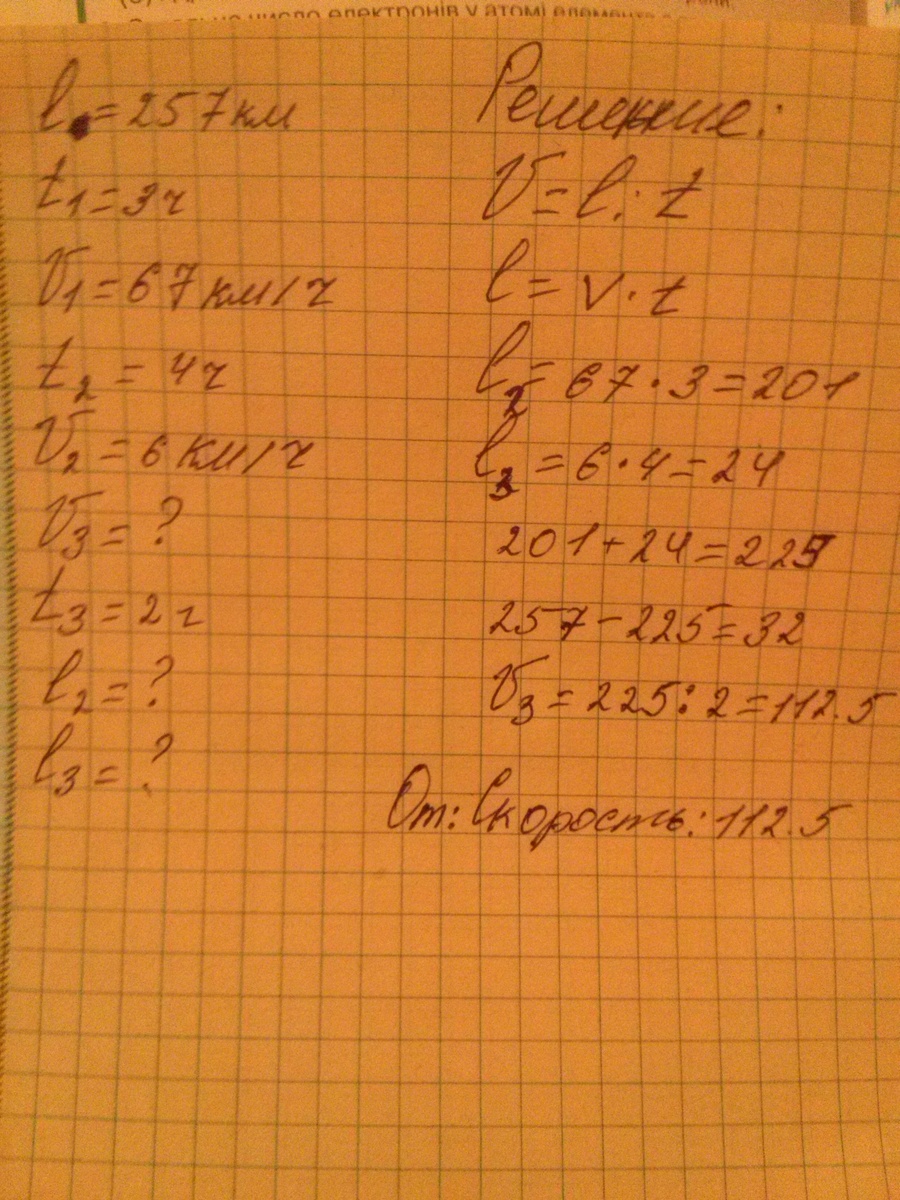 число електронів у атомі елемента
l = 257 км
t₁ = 3 ч
V₁ = 67 км/ч
t₂ = 4 ч
V₂ = 6 км/ч
V₃ = ?
t₃ = 2 ч
l₂ = ?
l₃ = ?
Решение:
V = l : t
l = v · t
l₂ = 67 · 3 = 201
l₃ = 6 · 4 = 24
201 + 24 = 225
257 - 225 = 32
V₃ = 225 : 2 = 112.5
От: Скорость: 112.5